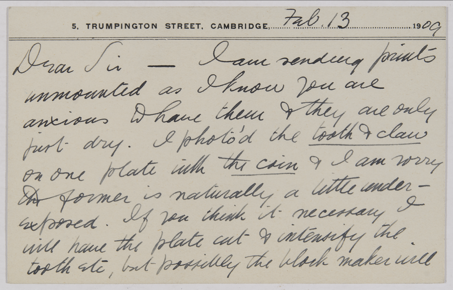 5, TRUMPINGTON STREET, CAMBRIDGE, Feb. 13 1909
Dear Sir — I am sending prints
unmounted as I know you are
anxious to have them & they are only
just dry. I photo'd the tooth & claw
on one plate with the coin & I am sorry
the former is naturally a little under-
exposed. If you think it necessary I
will have the plate cut & intensify the
tooth etc, but possibly the block maker will